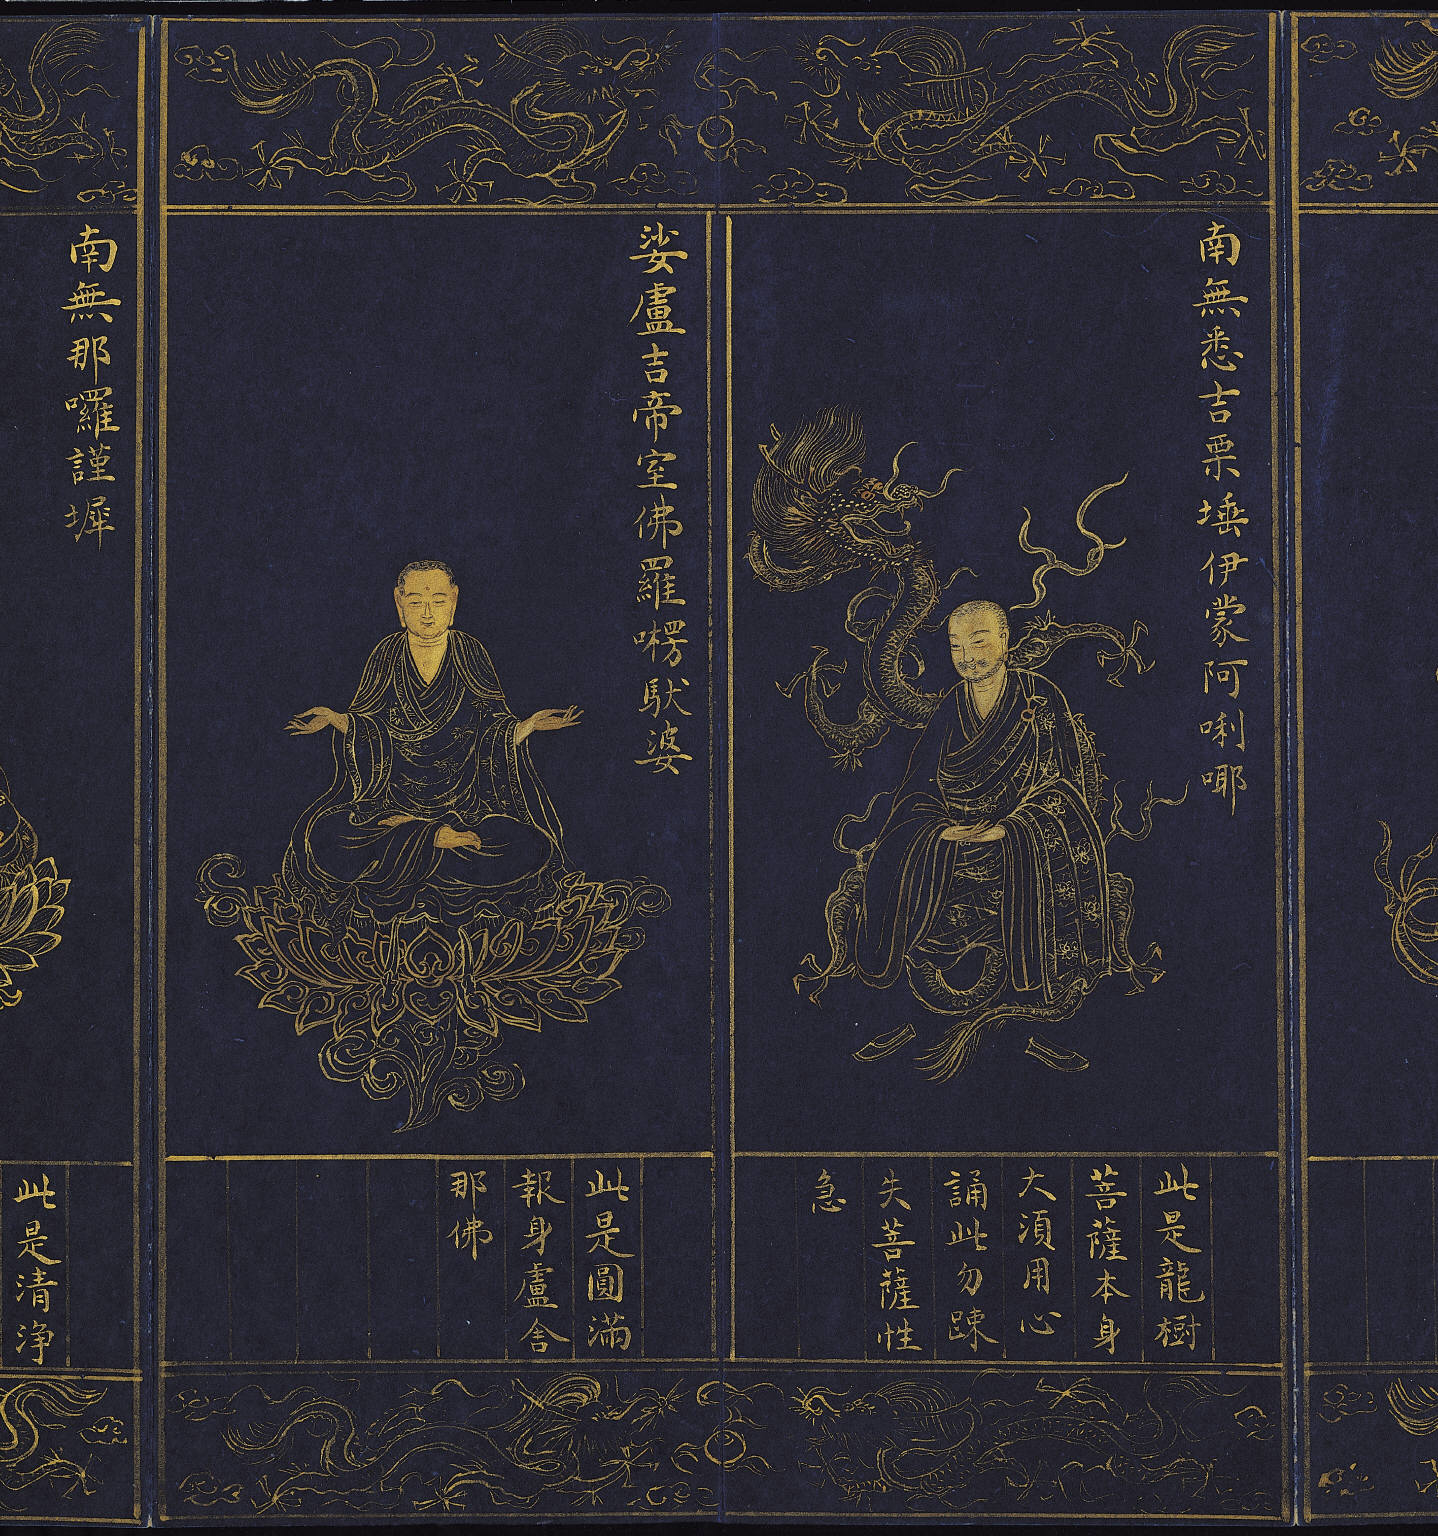 南無悉吉栗埵伊蒙阿唎唧
此是龍樹
菩薩本身
大須用心
誦此勿踈
失菩薩性
急
娑盧吉帝室佛羅㘄馱婆
此是圓滿
報身盧舍
那佛
南無那囉謹墀
此是清淨